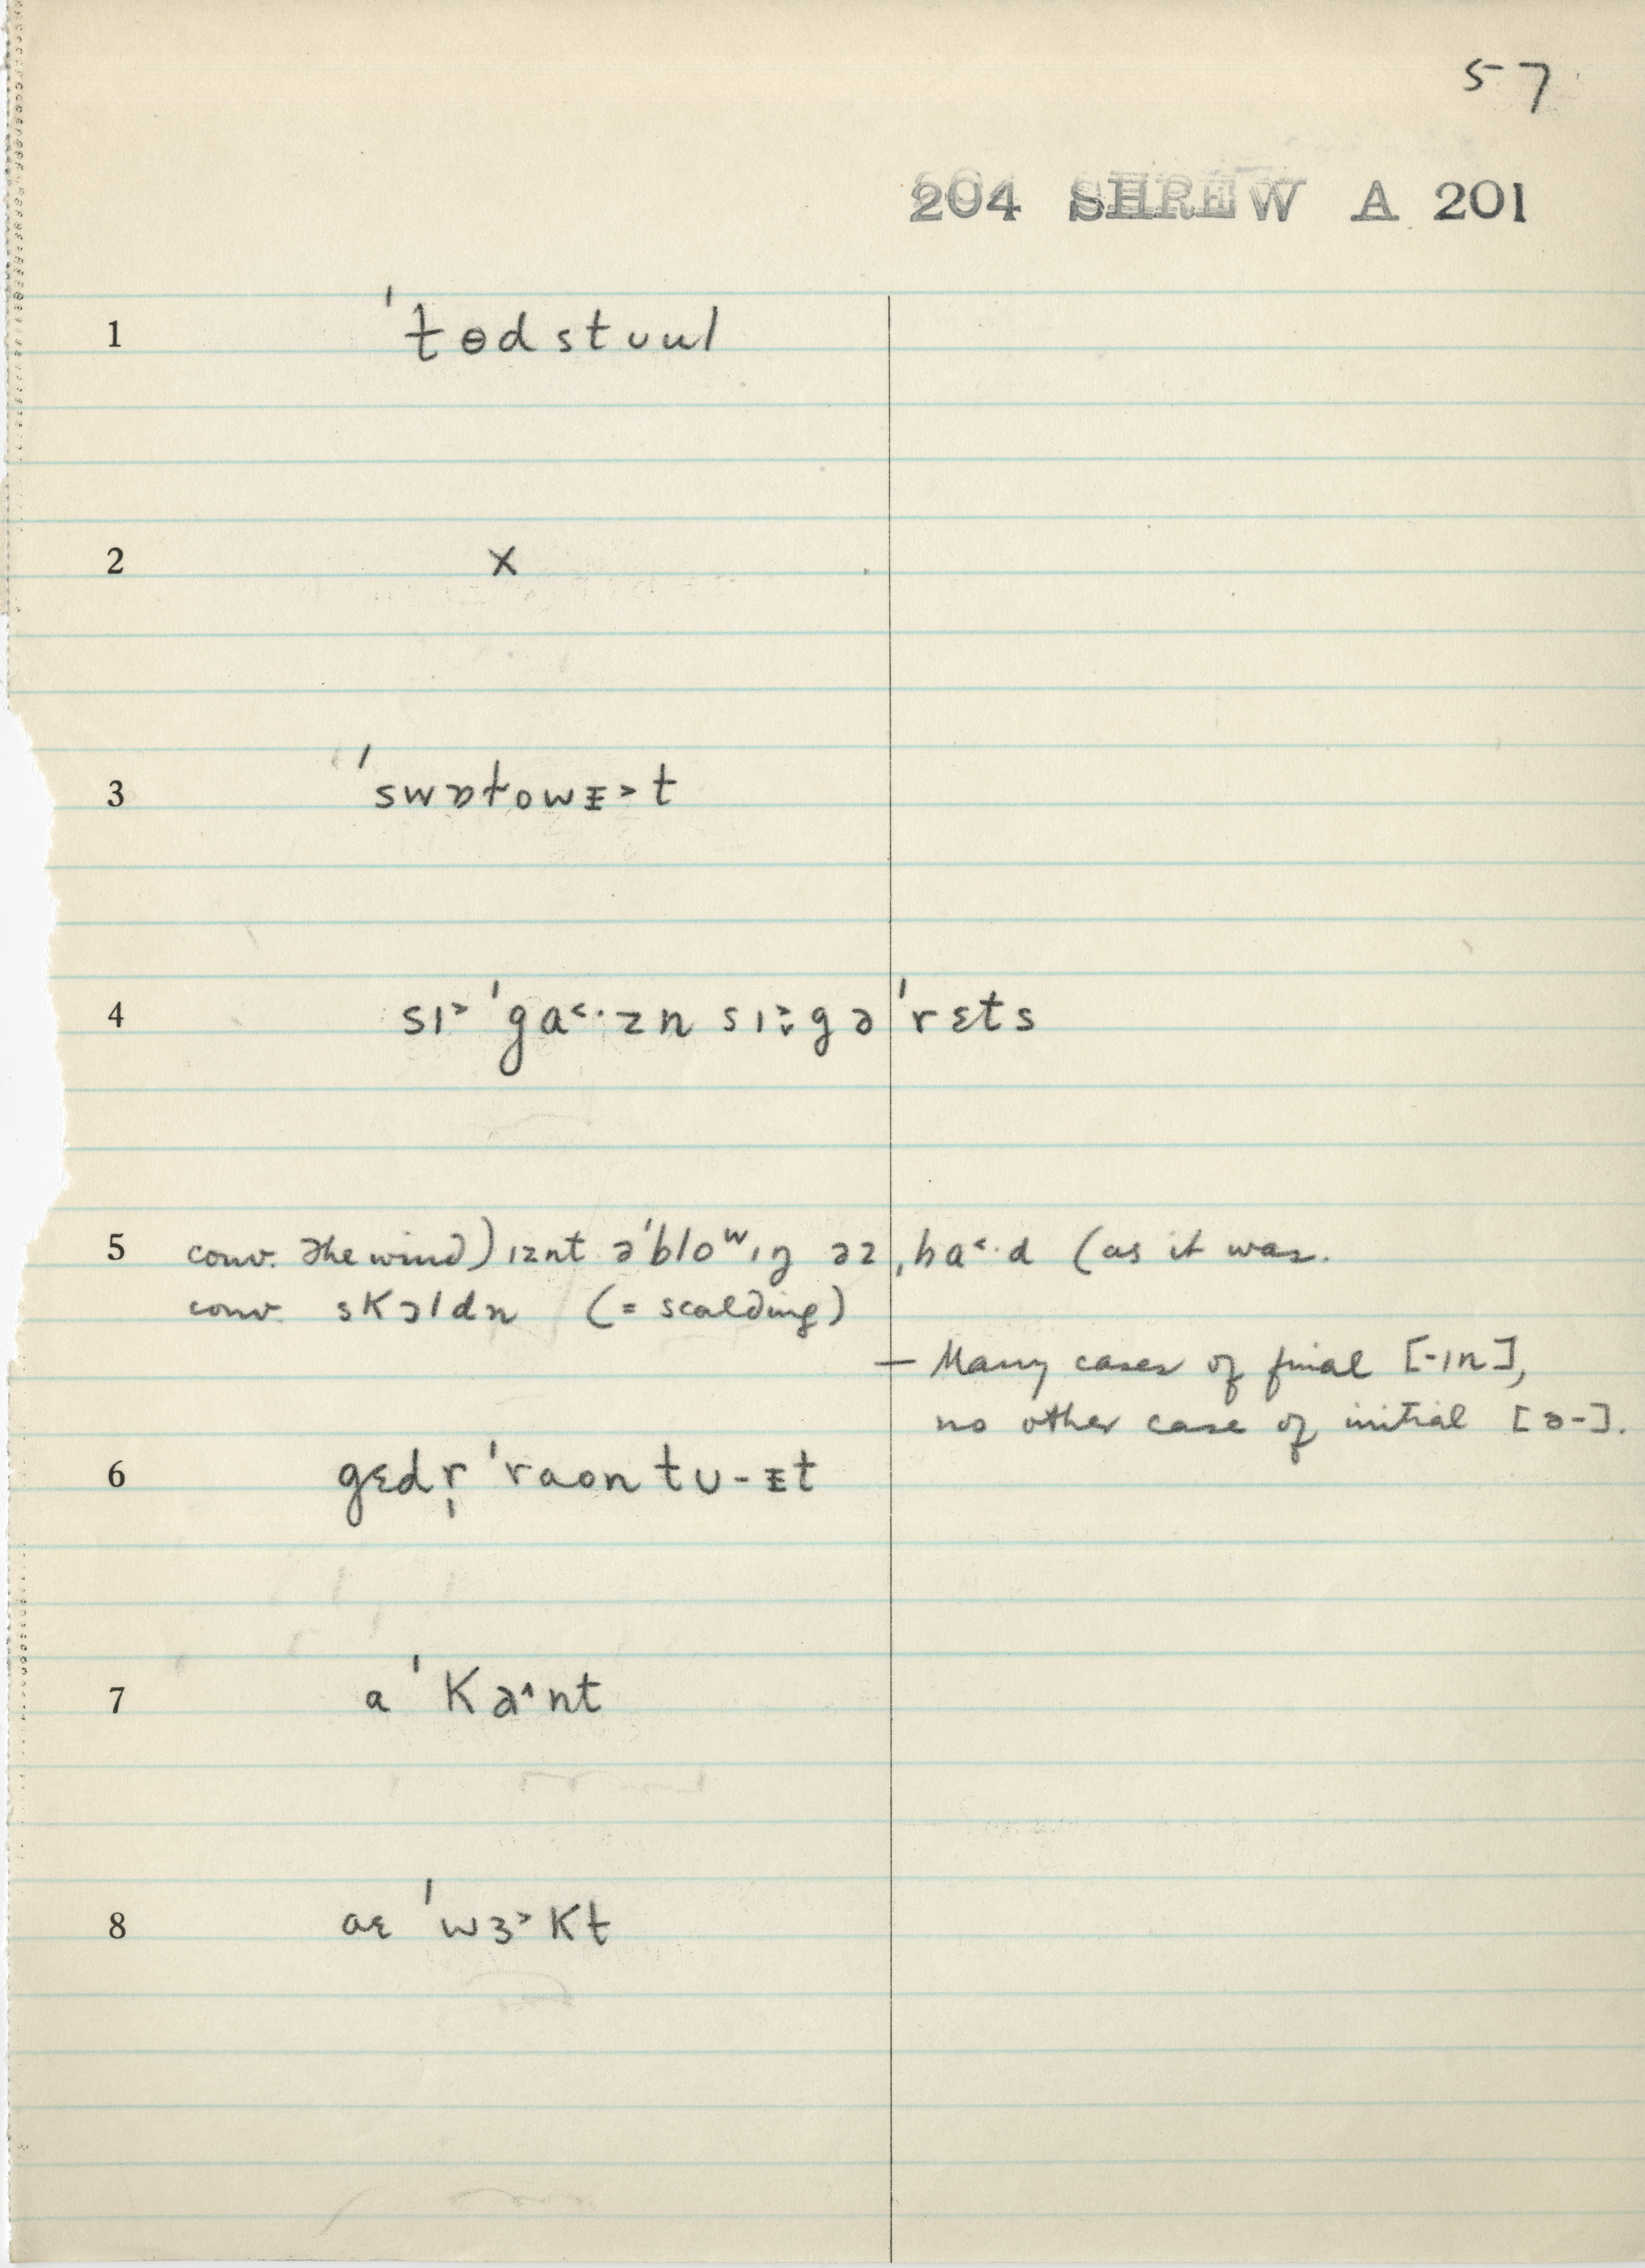 57
204 SHREW A 201
1 ˈtɵdstuul
2 x
3 ˈswɒtowᵻ˃t
4 sɪ˃ ˈga˂·zn sɪ˃gəˈrɛts
5 conv. the wind) ɪznt əˈbloʷɪŋ əz ˌha˂·d (as it was.
conv. skɔldn (= scalding)
— Many cases of final [-ɪn],
no other case of initial [ə-].
6 gɛdr̩ ˈraon tu-ᵻt
7 a ˈka˄nt
8 aɛ ˈwɜ˃kt